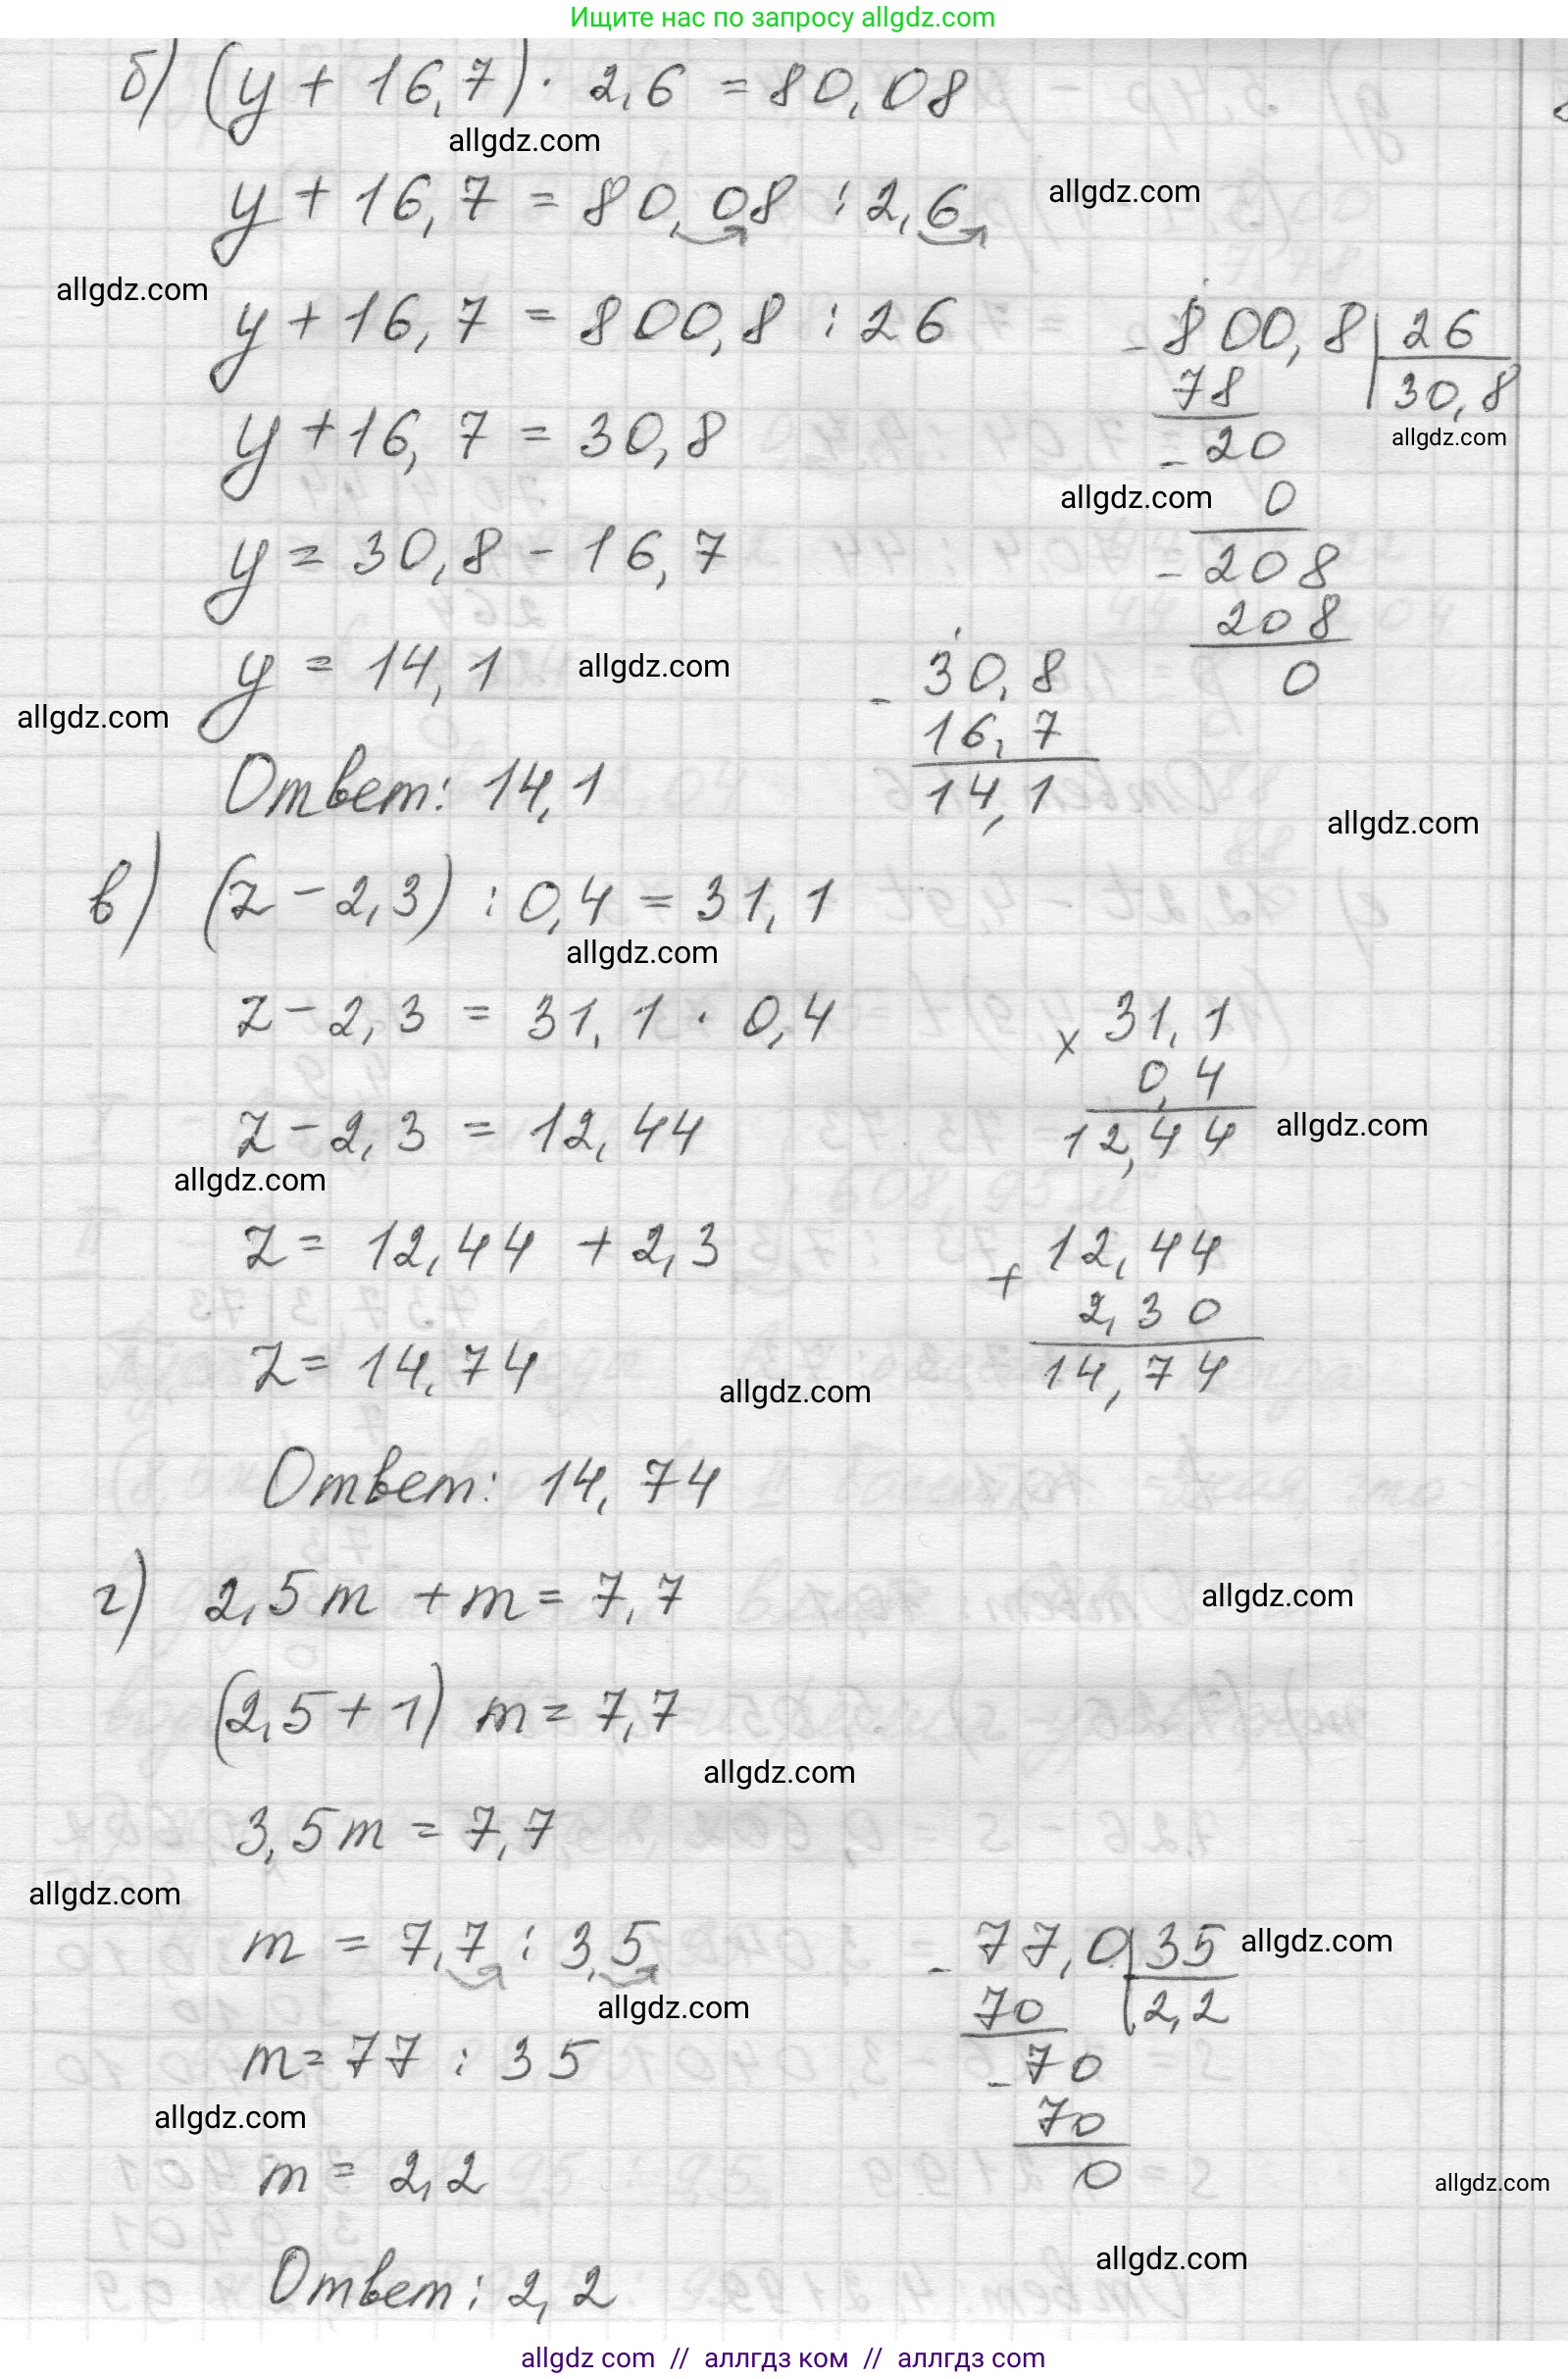 Ищите нас по запросу allgdz.com
б) (y + 16,7) · 2,6 = 80,08
allgdz.com
y + 16,7 = 80,08 : 2,6
allgdz.com
allgdz.com
y + 16,7 = 800,8 : 26
- 800,8 | 26
78
30,8
y + 16,7 = 30,8
- 20
allgdz.com
allgdz.com
0
y = 30,8 - 16,7
- 208
208
0
y = 14,1
allgdz.com
allgdz.com
- 30,8
16,7
14,1
Ответ: 14,1
allgdz.com
в) (z - 2,3) : 0,4 = 31,1
allgdz.com
z - 2,3 = 31,1 · 0,4
x 31,1
0,4
12,44
allgdz.com
z - 2,3 = 12,44
allgdz.com
z = 12,44 + 2,3
+ 12,44
2,30
14,74
z = 14,74
allgdz.com
Ответ: 14,74
г) 2,5m + m = 7,7
allgdz.com
(2,5 + 1) m = 7,7
allgdz.com
3,5m = 7,7
allgdz.com
m = 7,7 : 3,5
- 77,0 | 35
allgdz.com
70
2,2
allgdz.com
m = 77 : 35
- 70
70
0
allgdz.com
m = 2,2
allgdz.com
allgdz.com
Ответ: 2,2
allgdz.com // аллгдз ком // аллгдз com